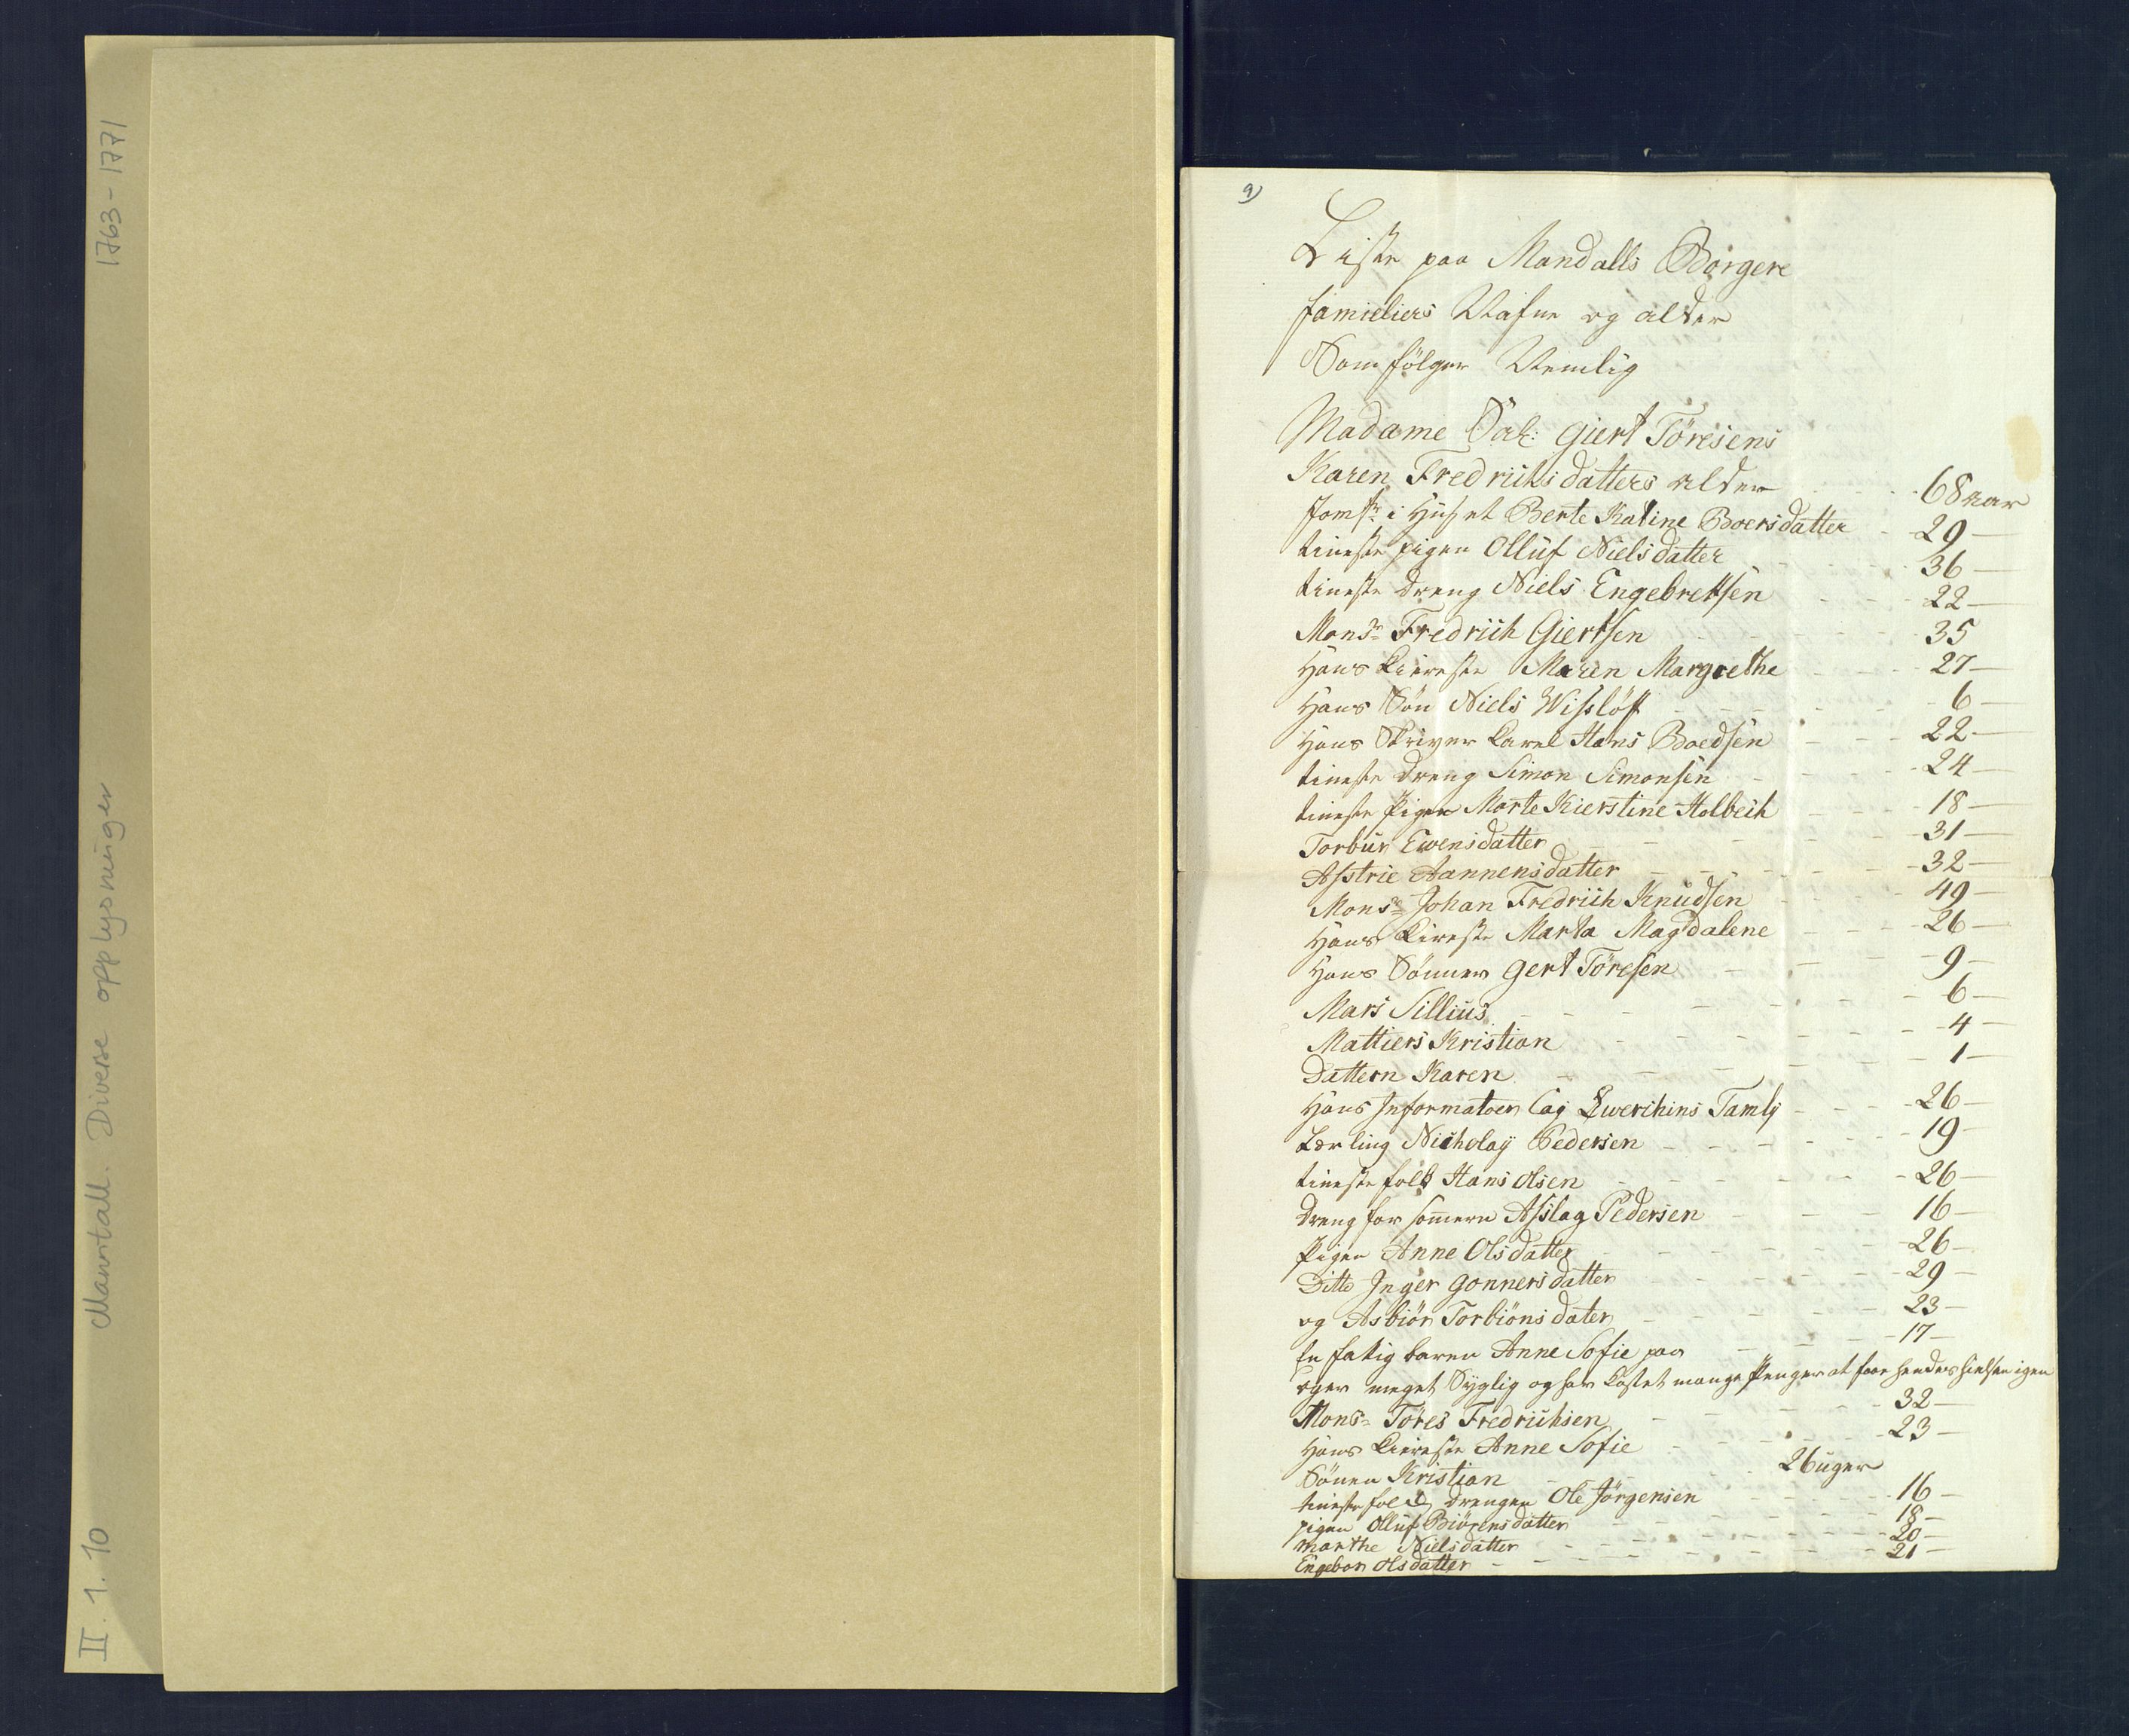 II. 1. 10 Manntall. Diverse opplysninger 1763-1771
9)
Liste paa Mandalls Borgere
familiers Nafne og alder
Som følger Nemlig
Madame Sal: Giert Töresens
Karen Fredrichs datters alder 68 aar
Jomfr i Huset Berte Katine Boersdatter 29
tieneste pigen Olluf Niels datter 36
tieneste dreng Niels Engebretsen 22
Monsr Fredrich Giertsen 35
Hans Kiereste Maren Margrethe 27
Hans Sön Niels Wislöff 6
Hans Skriver Karel Hans Boedsen 22
tieneste dreng Simon Simonsen 24
tieneste Pigen Marte Kierstine Holbech 18
Torbur Evensdatter 31
Asstrie Aannensdatter 32
Monsr Johan Fredrich Knudsen 49
Hans Kireste Marta Magdalene 26
Hans Sönner Gert Töresen 9
Mars Sillius 6
Mattiers Kristian 4
Dattern Karen 1
Hans Informatoer Caj Tamly 26
Lærling Nicholay Pedersen 19
tieneste folk Hans Olsen 26
dreng for somern Asslag Pedersen 16
Pigen Anne Olsdatter 26
Ditto Inger Gonners datter 29
og Asbiör Torbiöns dater 23
En fatig baren Anne Sofie paa 17
og er meget Syglig og har kostet mange Penger at faae hendes helsen igen
Monsr Töres Fredrichsen 32
Hans Kiereste Anne Sofie 23
Sönen Kristian 26 uger
tieneste folck drengen Ole Jörgensen 16
pigen Olluf Biörens datter 18
Marthe Nielsdatter 20
Engebor Olsdatter 21